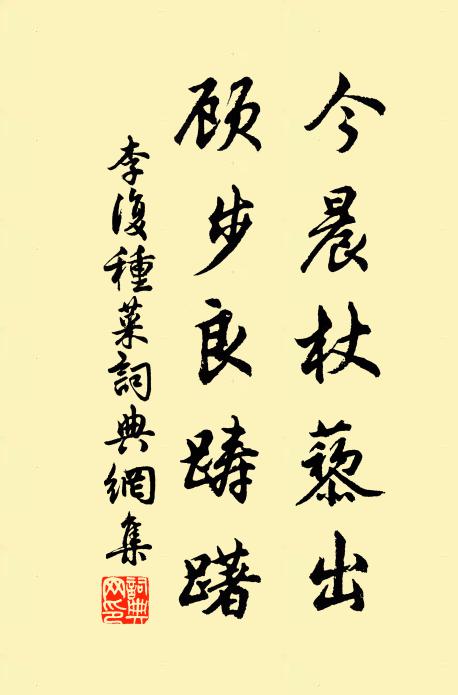 今晨杖藜出
顾步良踌躇
李復種菜詞典網集
詞典网印